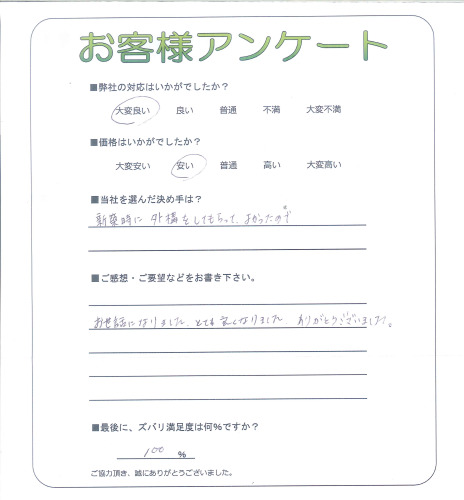 お客様アンケート
■弊社の対応はいかがでしたか？
大変良い 良い 普通 不満 大変不満
■価格はいかがでしたか？
大変安い 安い 普通 高い 大変高い
■当社を選んだ決め手は？
新築時に 外構をしてもらって、よかったので
■ご感想・ご要望などをお書き下さい。
お世話になりました。とても良くなりました。ありがとうございました。
■最後に、ズバリ満足度は何％ですか？
100 ％
ご協力頂き、誠にありがとうございました。